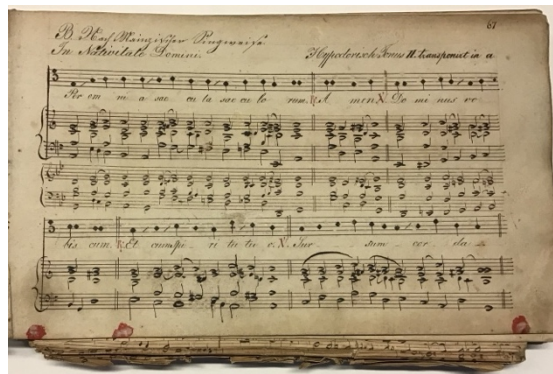 67
B. Nach Mainzischer Singweise.
In Nativitate Domini. Hypodorisch Tonus II. transponirt in a
Per om ni a sae cu la sae cu lo rum. R. A men V. Do mi nus vo
bis cum. R. Et cum spi ri tu tu o. V. Sur sum cor da